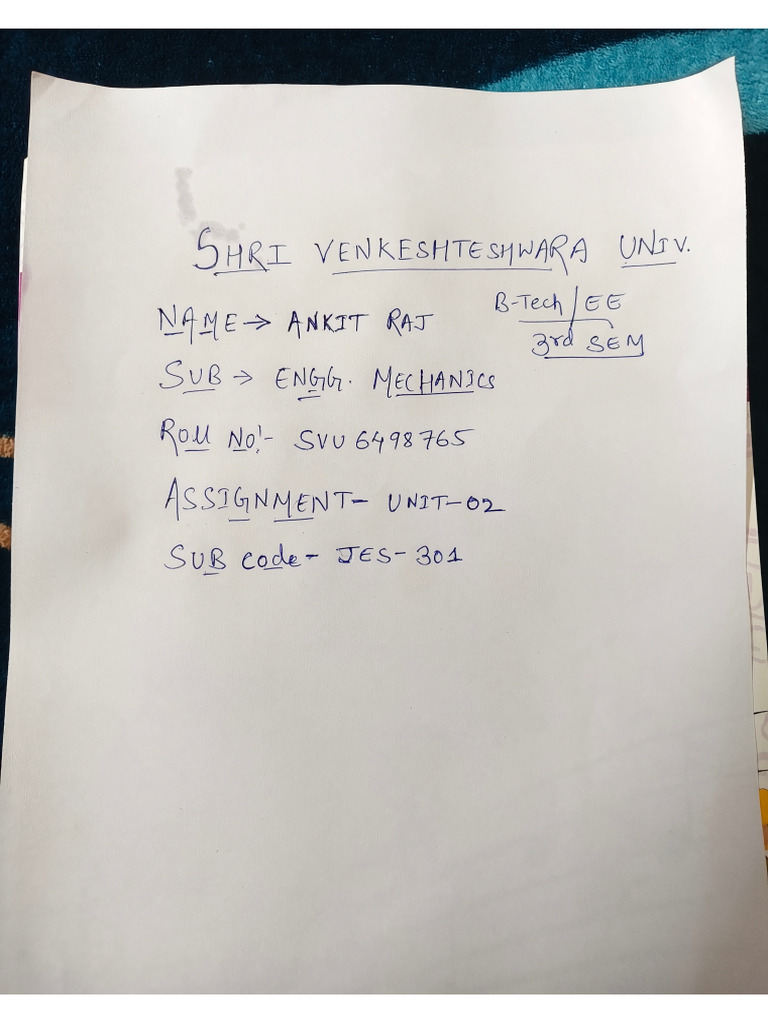 SHRI VENKESHTESHWARA UNIV.
NAME → ANKIT RAJ
B-Tech/EE
3rd SEM
SUB → ENGG. MECHANICS
Roll No!- SVU 6498765
ASSIGNMENT- UNIT-02
SUB Code- JES-301